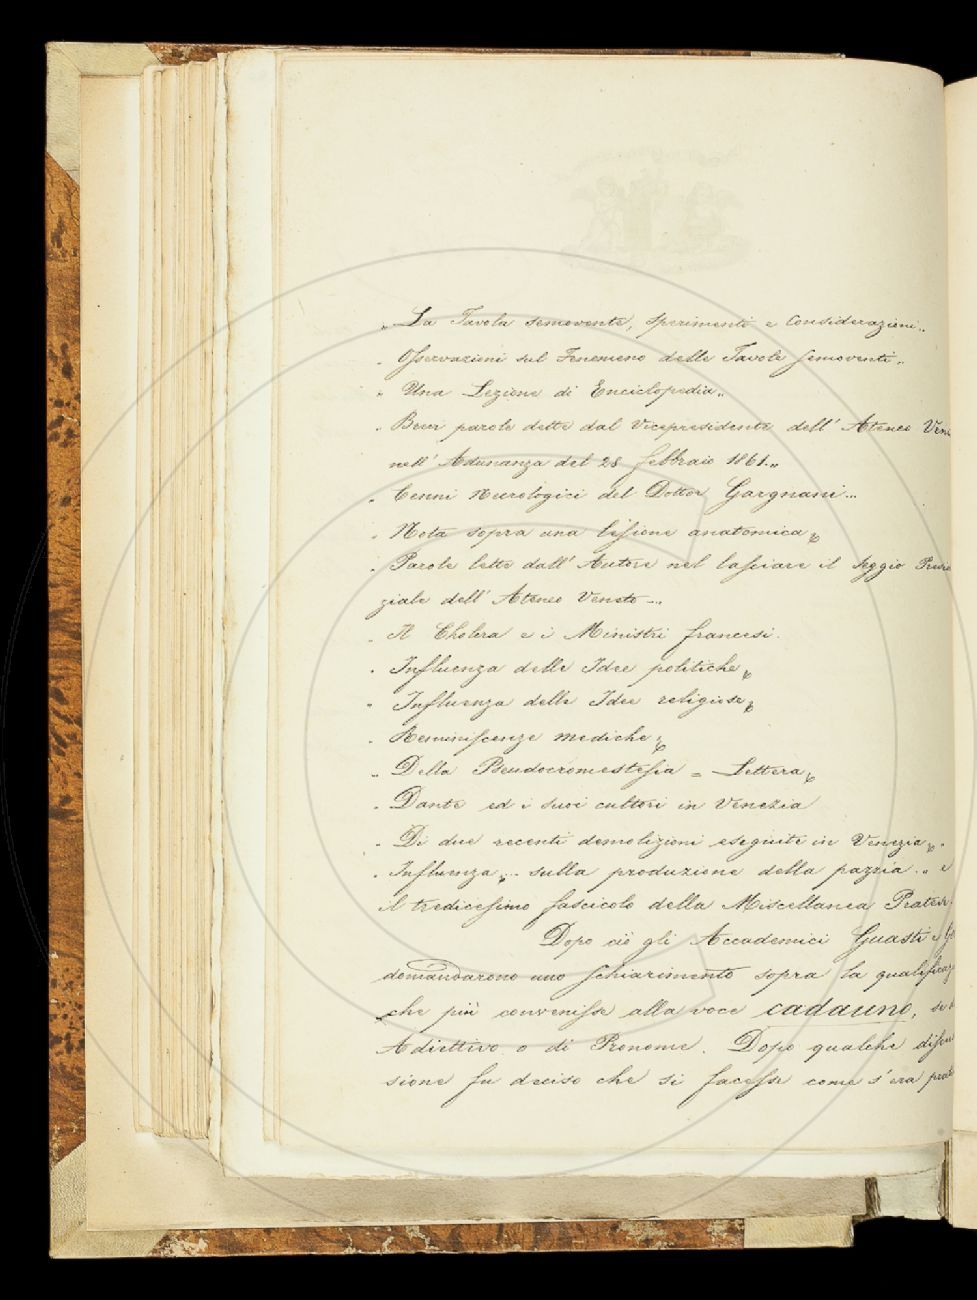 „ La Tavola semovente, Sperimenti e Considerazioni „
„ Osservazioni sul Fenomeno delle Tavole semoventi „
„ Una Lezione di Enciclopedia „
„ Brevi parole dette dal Vicepresidente dell' Ateneo Ven
nell' Adunanza del 28 febbraio 1861. „
„ Cenni Necrologici del Dottor Gargnani „
„ Nota sopra una lesione anatomica „
„ Parole lette dall' Autore nel lasciare il seggio Presi
ziale dell' Ateneo Veneto „
„ Il Cholera e i Ministri francesi.
„ Influenza delle Idee politiche „
„ Influenza delle Idee religiose „
„ Reminiscenze mediche „
„ Della Pseudocromestesia = Lettera „
„ Dante ed i suoi cultori in Venezia
„ Di due recenti demolizioni eseguite in Venezia „
„ Influenza ... sulla produzione della pazzia „ e
il tredicesimo fascicolo della Miscellanea
Dopo ciò gli Accademici Guasti e
domandarono uno schiarimento sopra la qualificaz
che più convenisse alla voce cadauno, se
Adiettivo o di Pronome. Dopo qualche discus
sione fu deciso che si facesse come s'era